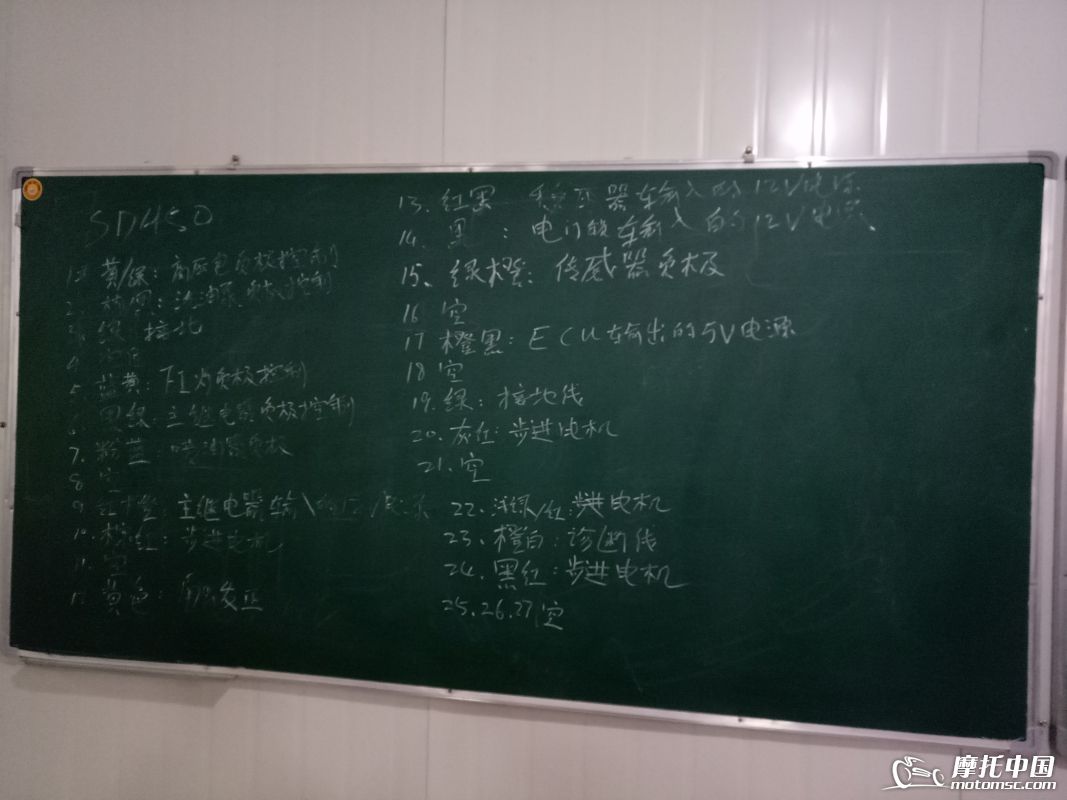 SD450
1. 黄/绿：高压包负极控制
2. 棕黑：油泵负极控制
3. 绿 接地
4
5. 蓝黄：FI灯负极控制
6 黑绿：主继电器负极控制
7. 粉蓝：喷油器负极
8 空
9. 红橙：主继电器输入的12V
10. 红：步进电机
11. 空
12 黄色：
13. 红黑 器输入的12V电源
14. 黑：电门锁输入的12V电源
15、绿橙：传感器负极
16 空
17 橙黑：ECU输出的5V电源
18 空
19. 绿：接地线
20. 灰红：步进电机
21. 空
22. 浅绿/红：步进电机
23. 橙白：诊断线
24. 黑红：步进电机
25.26.27空
摩托中国
motomsc.com